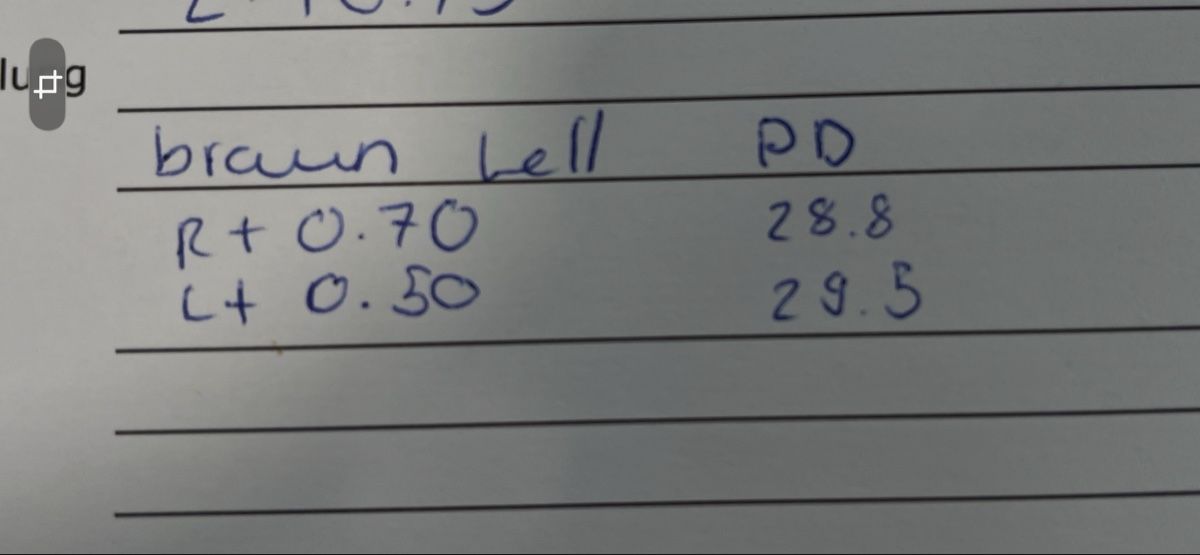 braun hell PD
R + 0.70 28.8
L + 0.50 29.5